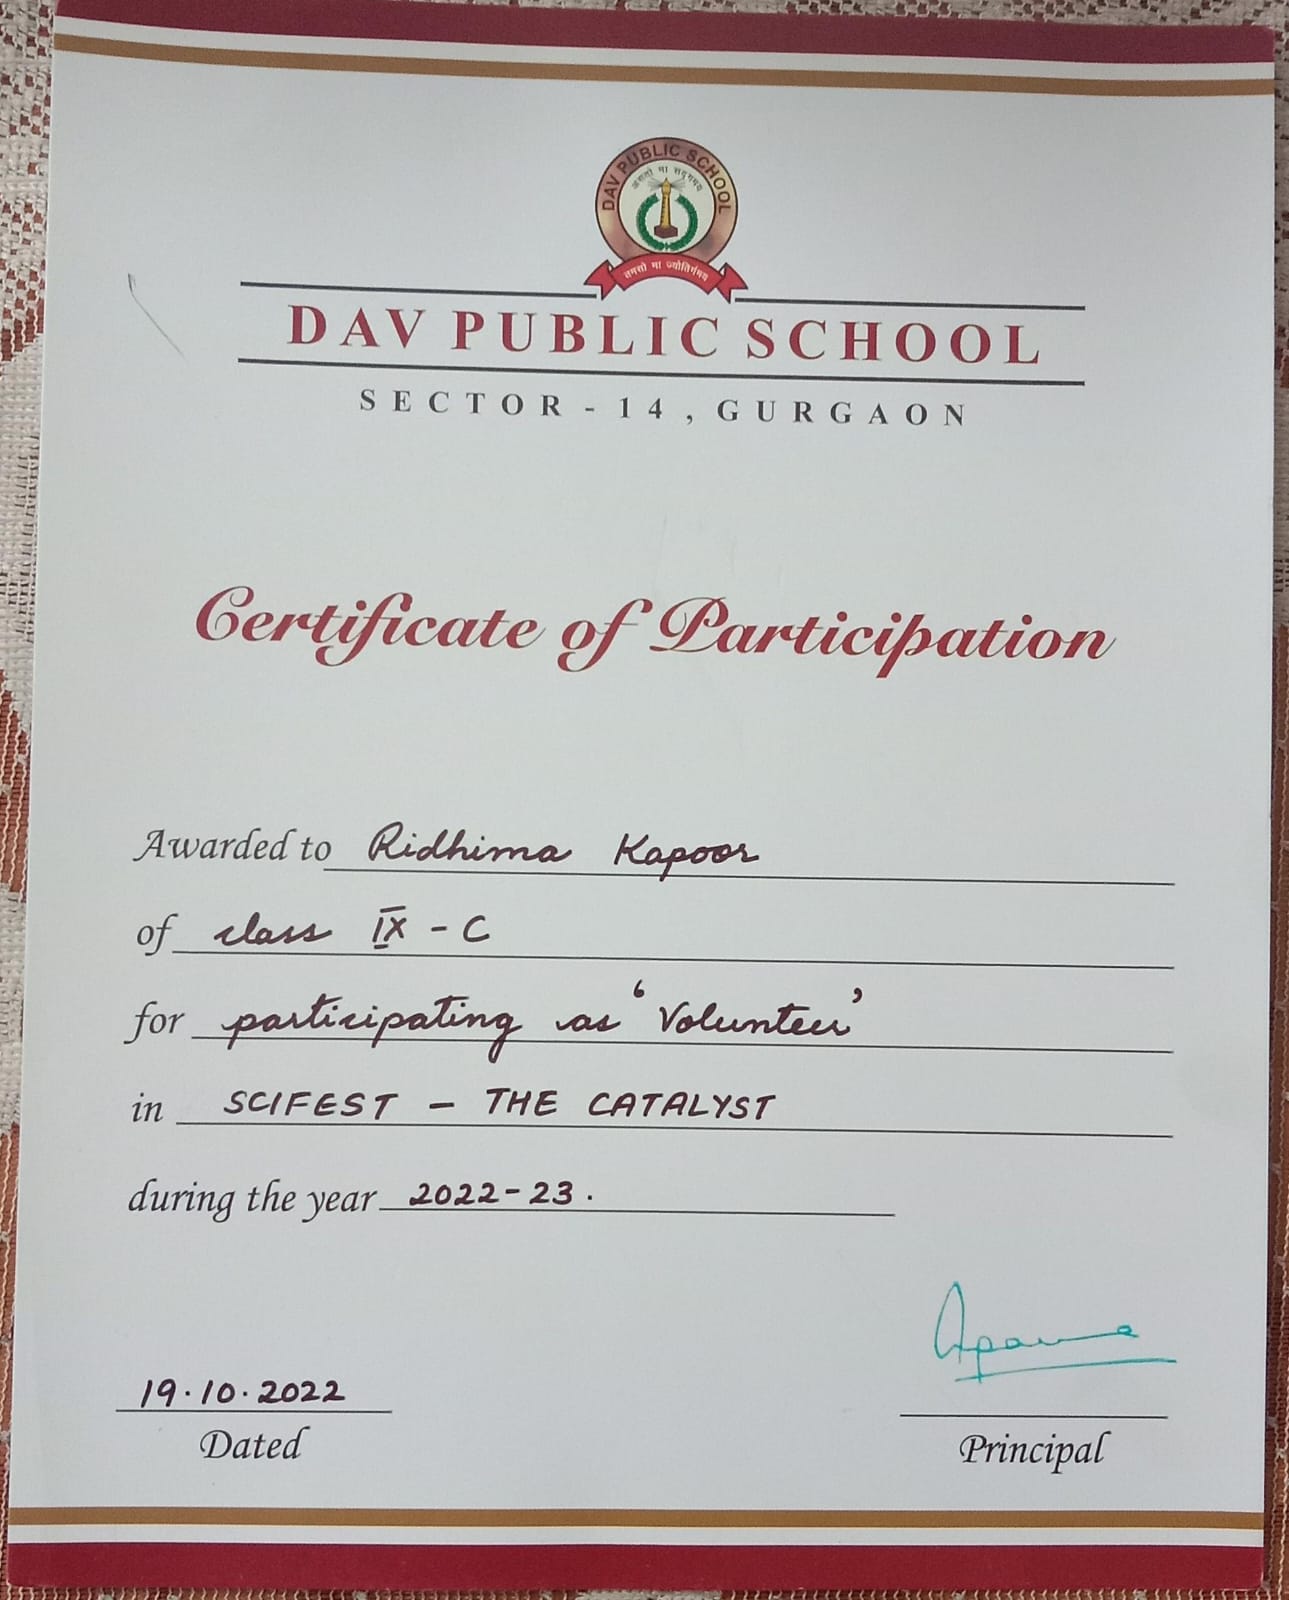 DAV PUBLIC SCHOOL
असतो मा सद्गमय
तमसो मा ज्योतिर्गमय
DAV PUBLIC SCHOOL
SECTOR - 14, GURGAON
Certificate of Participation
Awarded to Ridhima Kapoor
of class IX - C
for participating as 'Volunteer'
in SCIFEST - THE CATALYST
during the year 2022-23.
19.10.2022
Dated
Principal